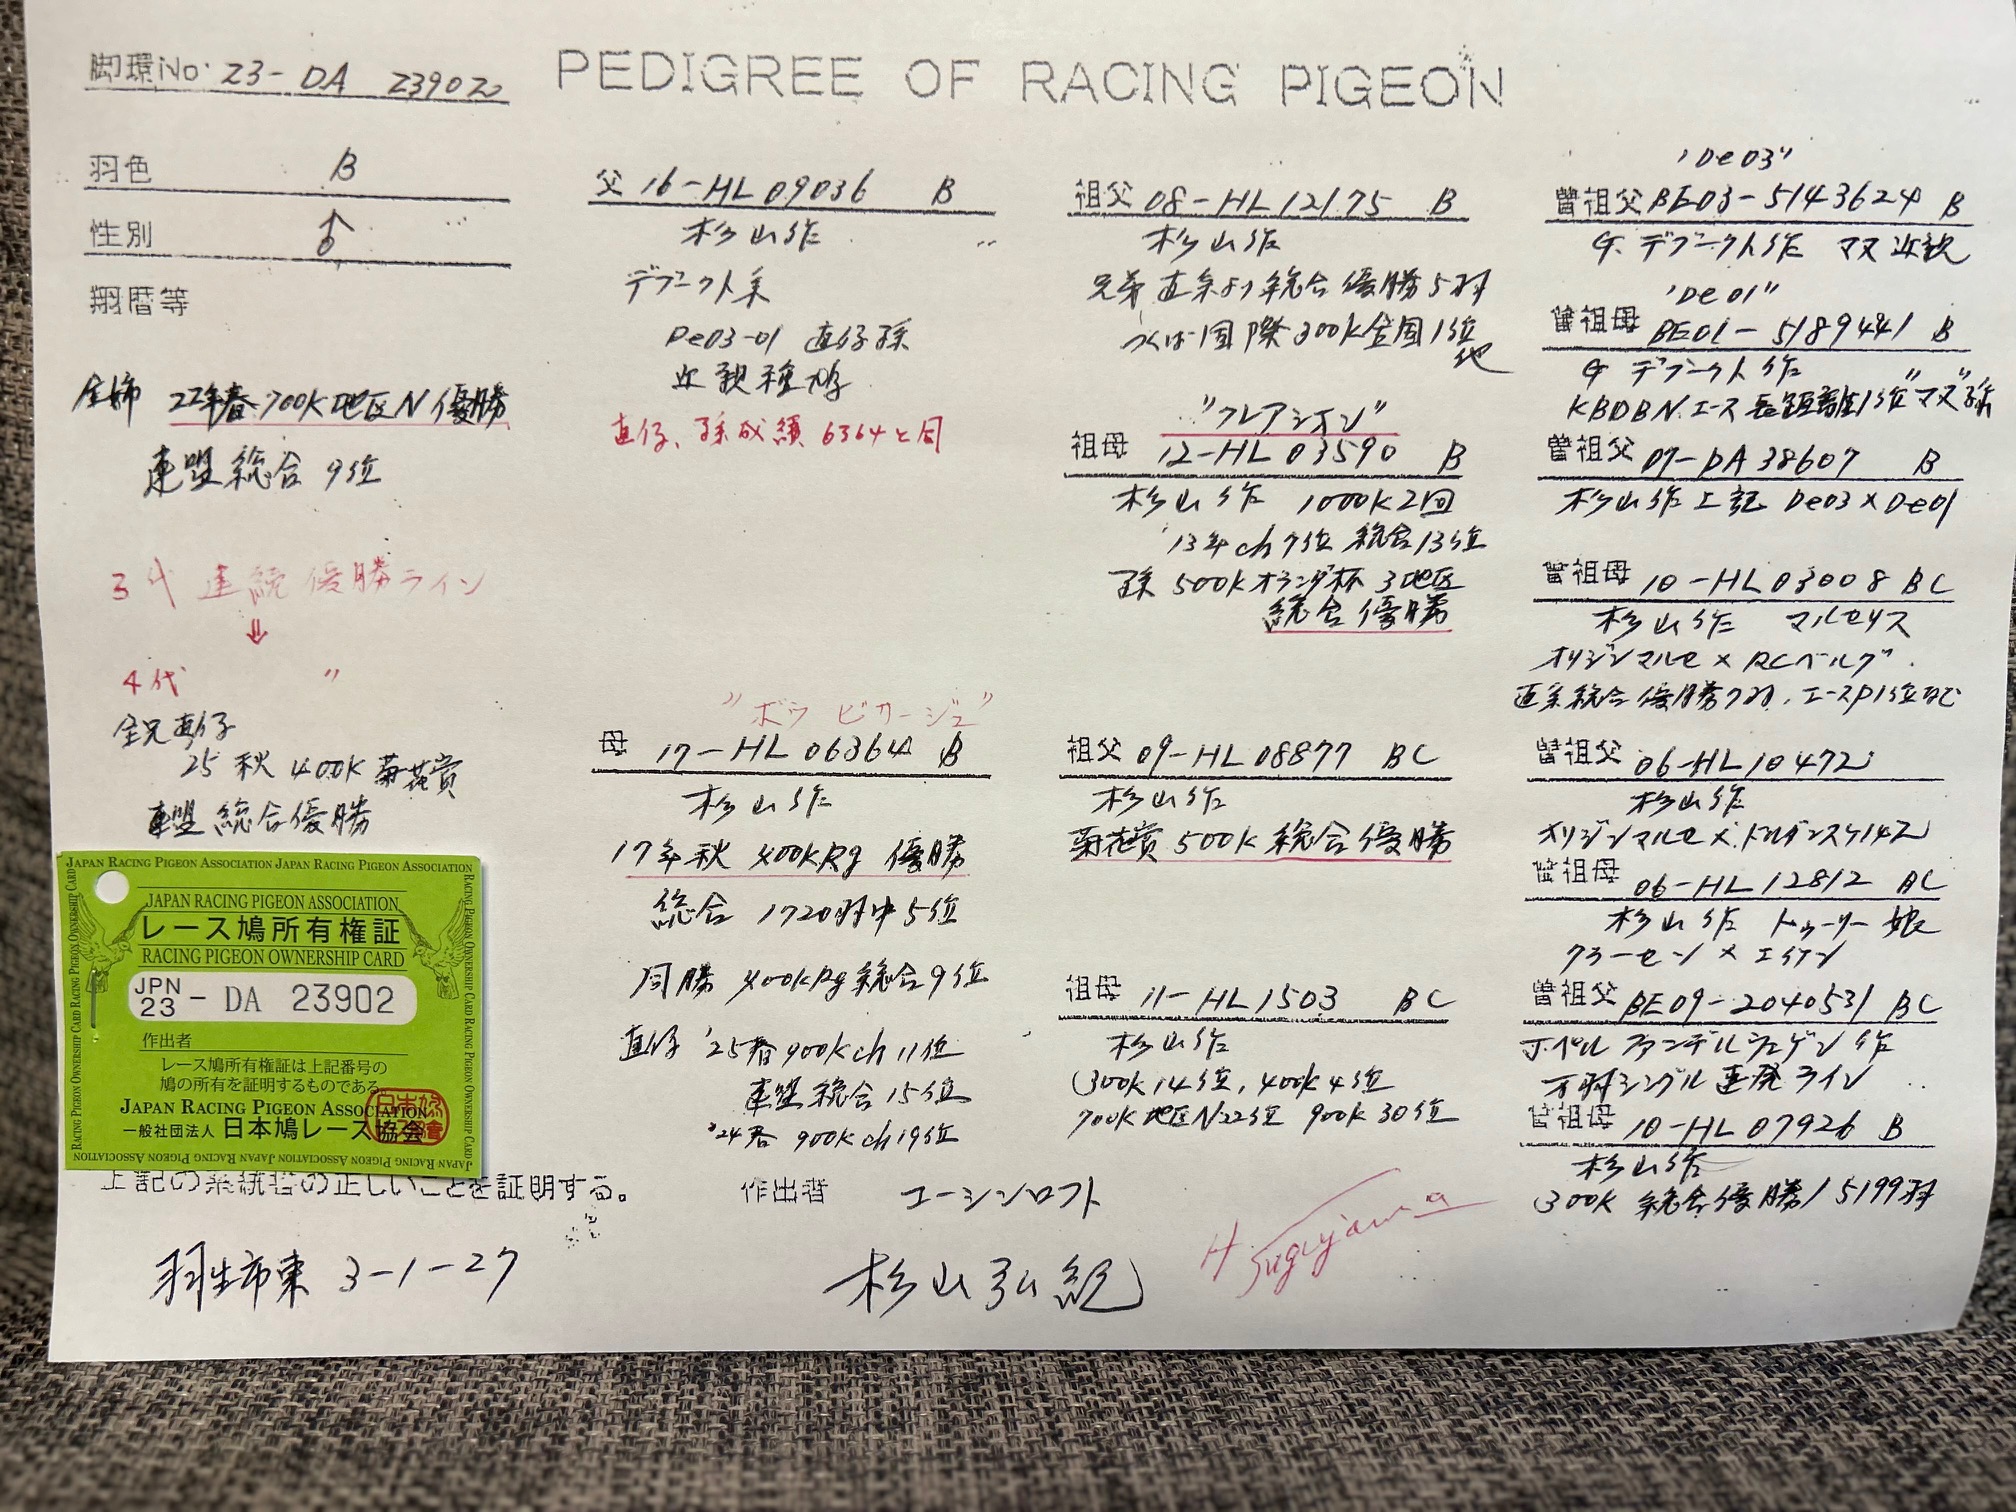 脚環No. 23-DA 23902
PEDIGREE OF RACING PIGEON
羽色 B
性別 ♂
翔歴等
全姉 22年春700K地区N優勝
連盟総合 9位
3代 連続優勝ライン
⇓
4代 〃
全兄直仔
25秋 400K 菊花賞
連盟総合優勝
父 16-HL 09036 B
杉山作
デブークト系
De03-01 直仔孫
近親種鳩
直仔、孫成績 6364と同
"ボウ ビカージュ"
母 17-HL 06364 B
杉山作
17年秋 400KRg 優勝
総合 1720羽中5位
同腹 400KRg総合9位
直仔 '25春900Kch11位
連盟総合15位
'24春 900Kch19位
祖父 08-HL12175 B
杉山作
兄弟 直系より総合優勝5羽
つくば国際300K全国1位
他
"クレアシオン"
祖母 12-HL 03590 B
杉山作 1000K2回
'13年ch7位 総合13位
孫 500Kオランダ杯 3地区
総合優勝
祖父 09-HL 08877 BC
杉山作
菊花賞 500K 総合優勝
祖母 11-HL1503 BC
杉山作
300K14位, 400K4位
700K地区N22位 900K30位
"De03"
曽祖父 BE03-5143624 B
G. デブークト作 マヌ近親
"De01"
曽祖母 BE01-5189441 B
G デブークト作
KBDB N.エース長距離1位"マヌ"孫
曽祖父 07-DA38607 B
杉山作 上記 De03×De01
曽祖母 10-HL03008 BC
杉山作 マルセリス
オリジンマルセ×RCベルグ
直系総合優勝7羽, エースP1位など
曽祖父 06-HL10472
杉山作
オリジンマルセ×
曽祖母 06-HL12812 BC
杉山作 トゥーリー娘
クラーセン×エイケン
曽祖父 BE09-2040531 BC
J.ペル ファンデルウェゲン作
万羽シングル連発ライン
曽祖母 10-HL 07926 B
杉山作
300K 総合優勝/5199羽
JAPAN RACING PIGEON ASSOCIATION JAPAN RACING PIGEON ASSOCIATION
JAPAN RACING PIGEON ASSOCIATION
レース鳩所有権証
RACING PIGEON OWNERSHIP CARD
JPN
23 - DA 23902
作出者
レース鳩所有権証は上記番号の
鳩の所有を証明するものである
JAPAN RACING PIGEON ASSOCIATION
一般社団法人 日本鳩レース協会
上記の系統書の正しいことを証明する。
作出者 エーシンロフト
羽生市東 3-1-27
杉山弘紀
H. Sugiyama